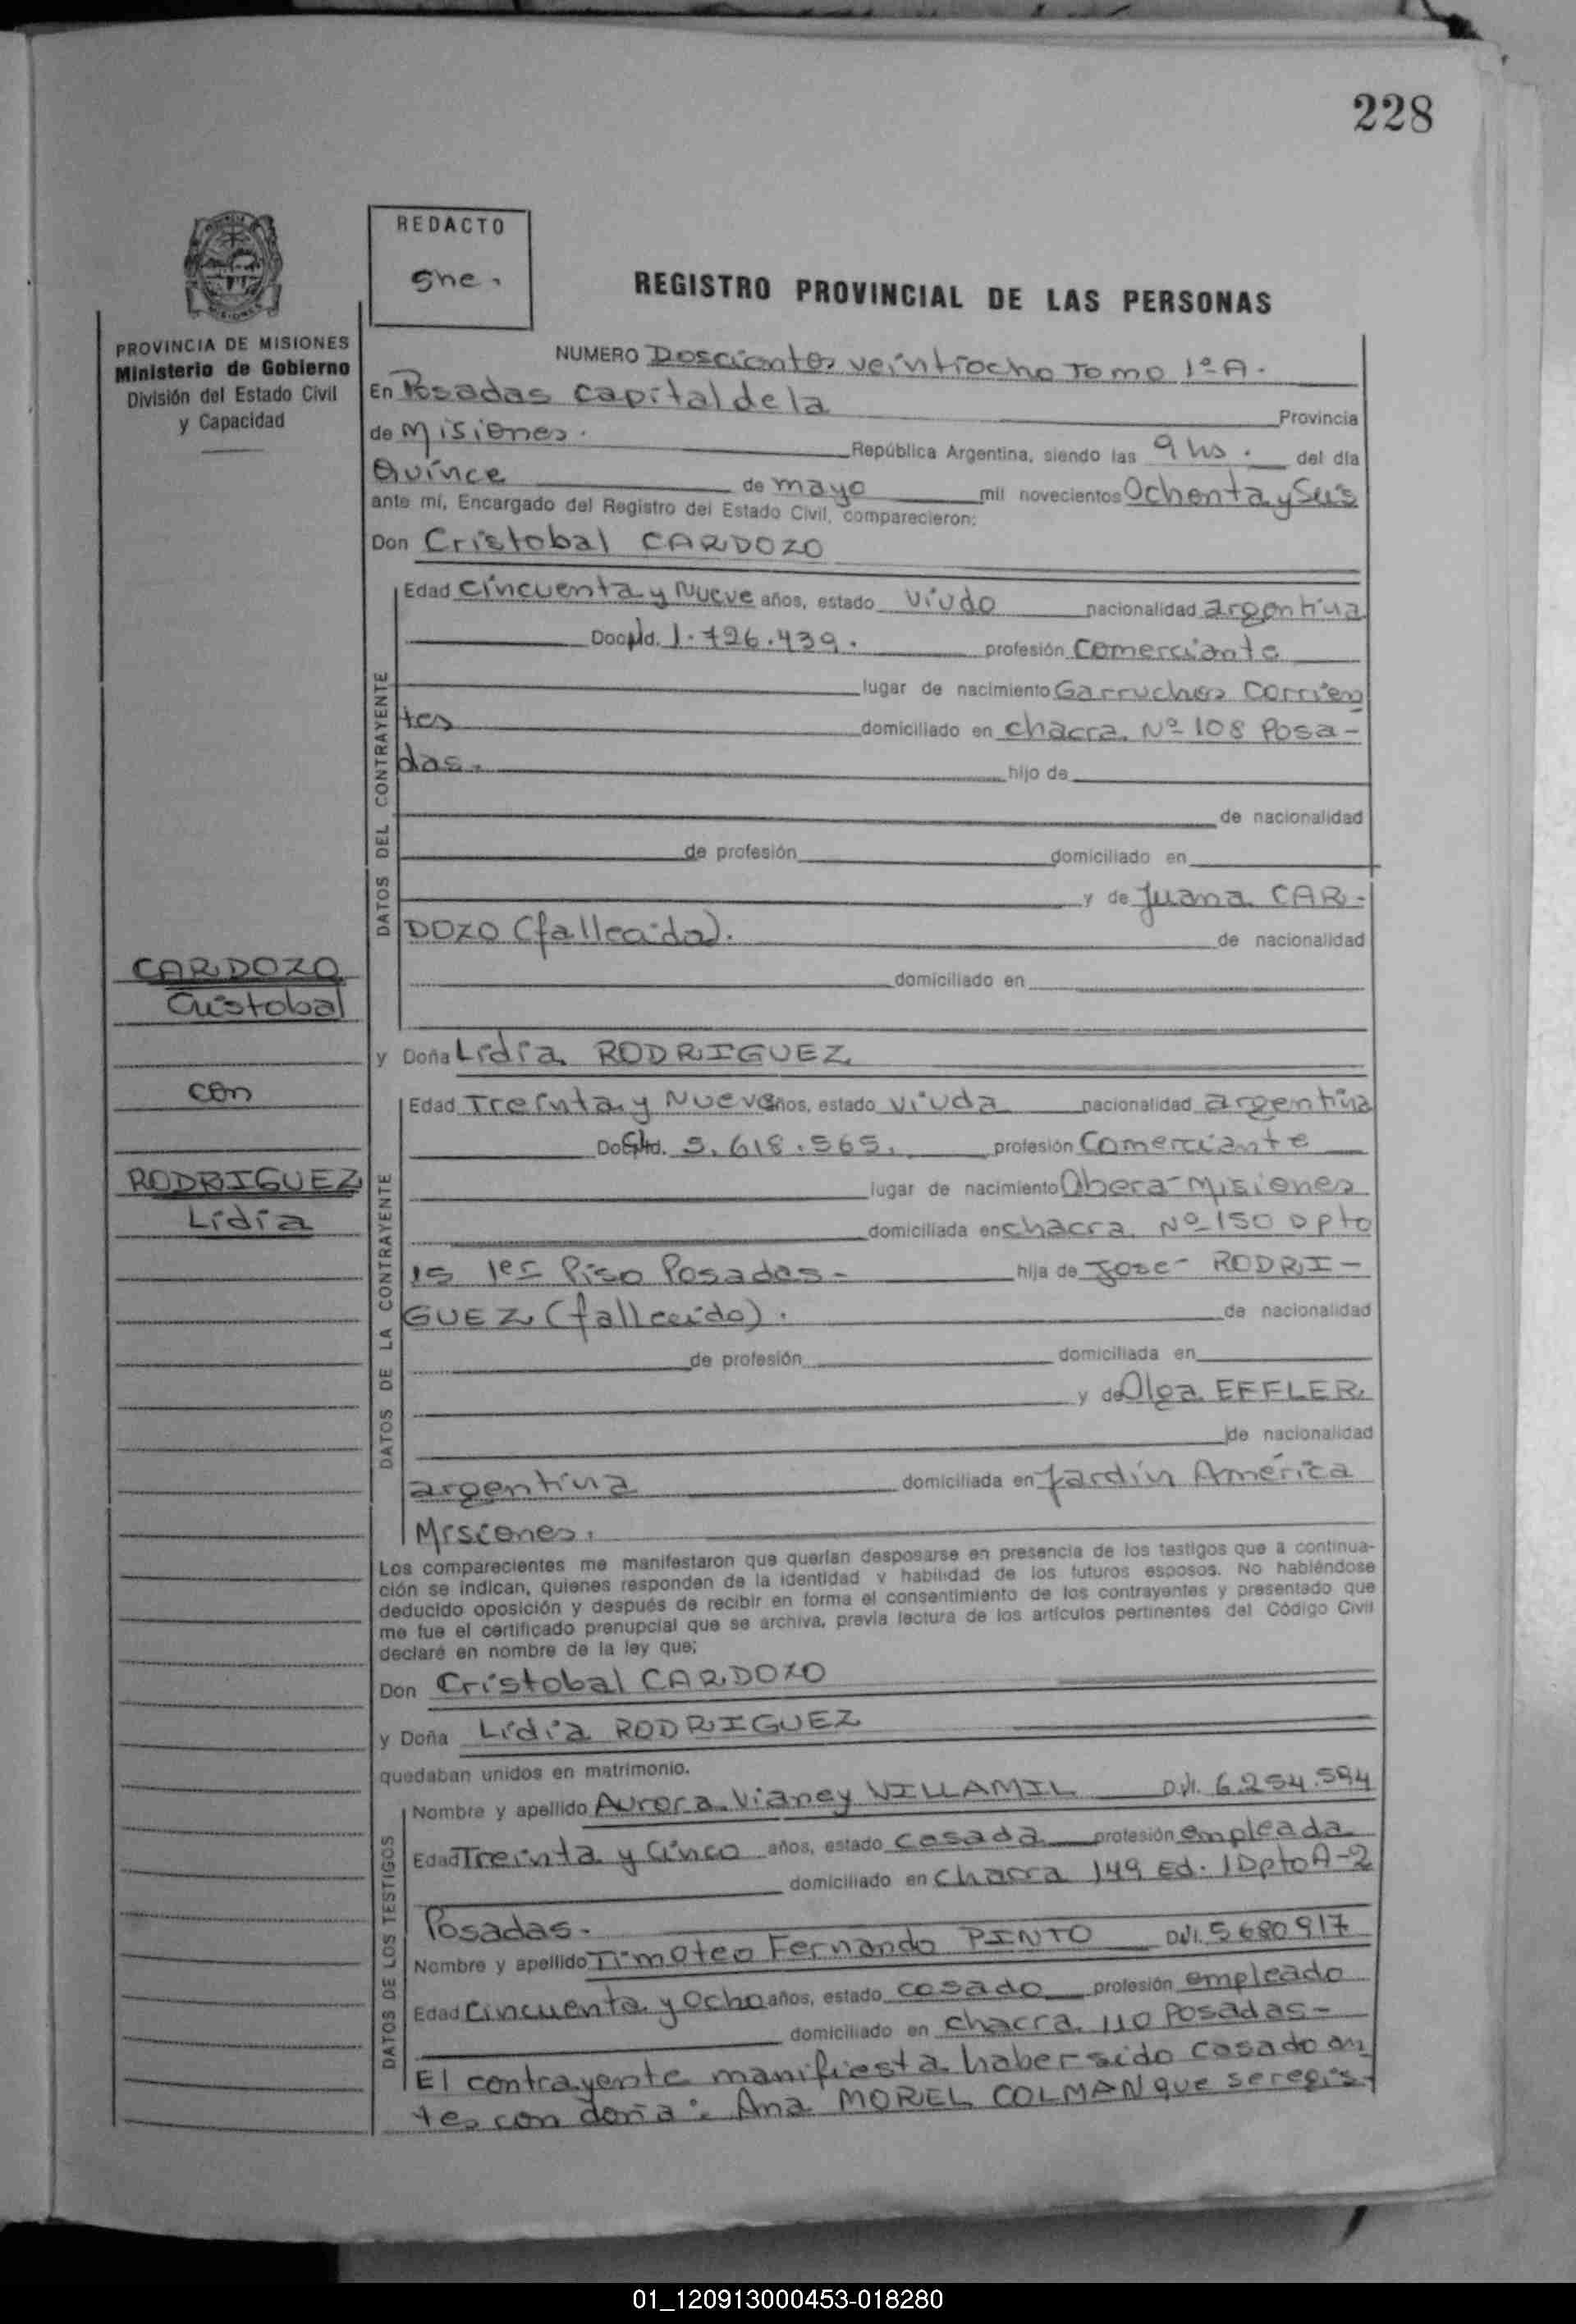 228
REDACTO
REGISTRO PROVINCIAL DE LAS PERSONAS
PROVINCIA DE MISIONES
Ministerio de Gobierno
División del Estado Civil
y Capacidad
NUMERO Doscientos veintiocho Tomo 1º A.
En Posadas capital de la Provincia
de Misiones. República Argentina, siendo las 9 hs. del día
Quince de mayo mil novecientos Ochenta y Seis
ante mí, Encargado del Registro del Estado Civil, comparecieron:
Don Cristobal CARDOZO
DATOS DEL CONTRAYENTE
Edad Cincuenta y Nueve años, estado viudo nacionalidad argentina
1.726.439. profesión Comerciante
lugar de nacimiento Garruchos Corrien
tes domiciliado en chacra Nº 108 Posa-
das. hijo de
de nacionalidad
de profesión domiciliado en
y de Juana CAR-
DOZO (fallecida). de nacionalidad
domiciliado en
CARDOZO
Cristobal
con
RODRIGUEZ
Lidia
y Doña Lidia RODRIGUEZ
DATOS DE LA CONTRAYENTE
Edad Treinta y Nueve años, estado viuda nacionalidad argentina
5.618.565. profesión Comerciante
lugar de nacimiento Obera-Misiones
domiciliada en chacra Nº 150 Dpto
15 1er Piso Posadas- hija de Jose- RODRI-
GUEZ (fallecido). de nacionalidad
de profesión domiciliada en
y de Olga EFFLER
de nacionalidad
argentina domiciliada en Jardín América
Misiones.
Los comparecientes me manifestaron que querían desposarse en presencia de los testigos que a continua-
ción se indican, quienes responden de la identidad y habilidad de los futuros esposos. No habiéndose
deducido oposición y después de recibir en forma el consentimiento de los contrayentes y presentado que
me fue el certificado prenupcial que se archiva, previa lectura de los artículos pertinentes del Código Civil
declaré en nombre de la ley que;
Don Cristobal CARDOZO
y Doña Lidia RODRIGUEZ
quedaban unidos en matrimonio.
DATOS DE LOS TESTIGOS
Nombre y apellido Aurora Vianey VILLAMIL 6.254.594
Edad Treinta y Cinco años, estado casada profesión empleada
domiciliado en chacra 149 Ed. 1 Dpto A-2
Posadas.
Nombre y apellido Timoteo Fernando PINTO 5680917
Edad Cincuenta y Ocho años, estado casado profesión empleado
domiciliado en chacra 110 Posadas-
El contrayente manifiesta haber sido casado an
tes con doña: Ana MORIEL COLMAN que se regis-
01_120913000453-018280